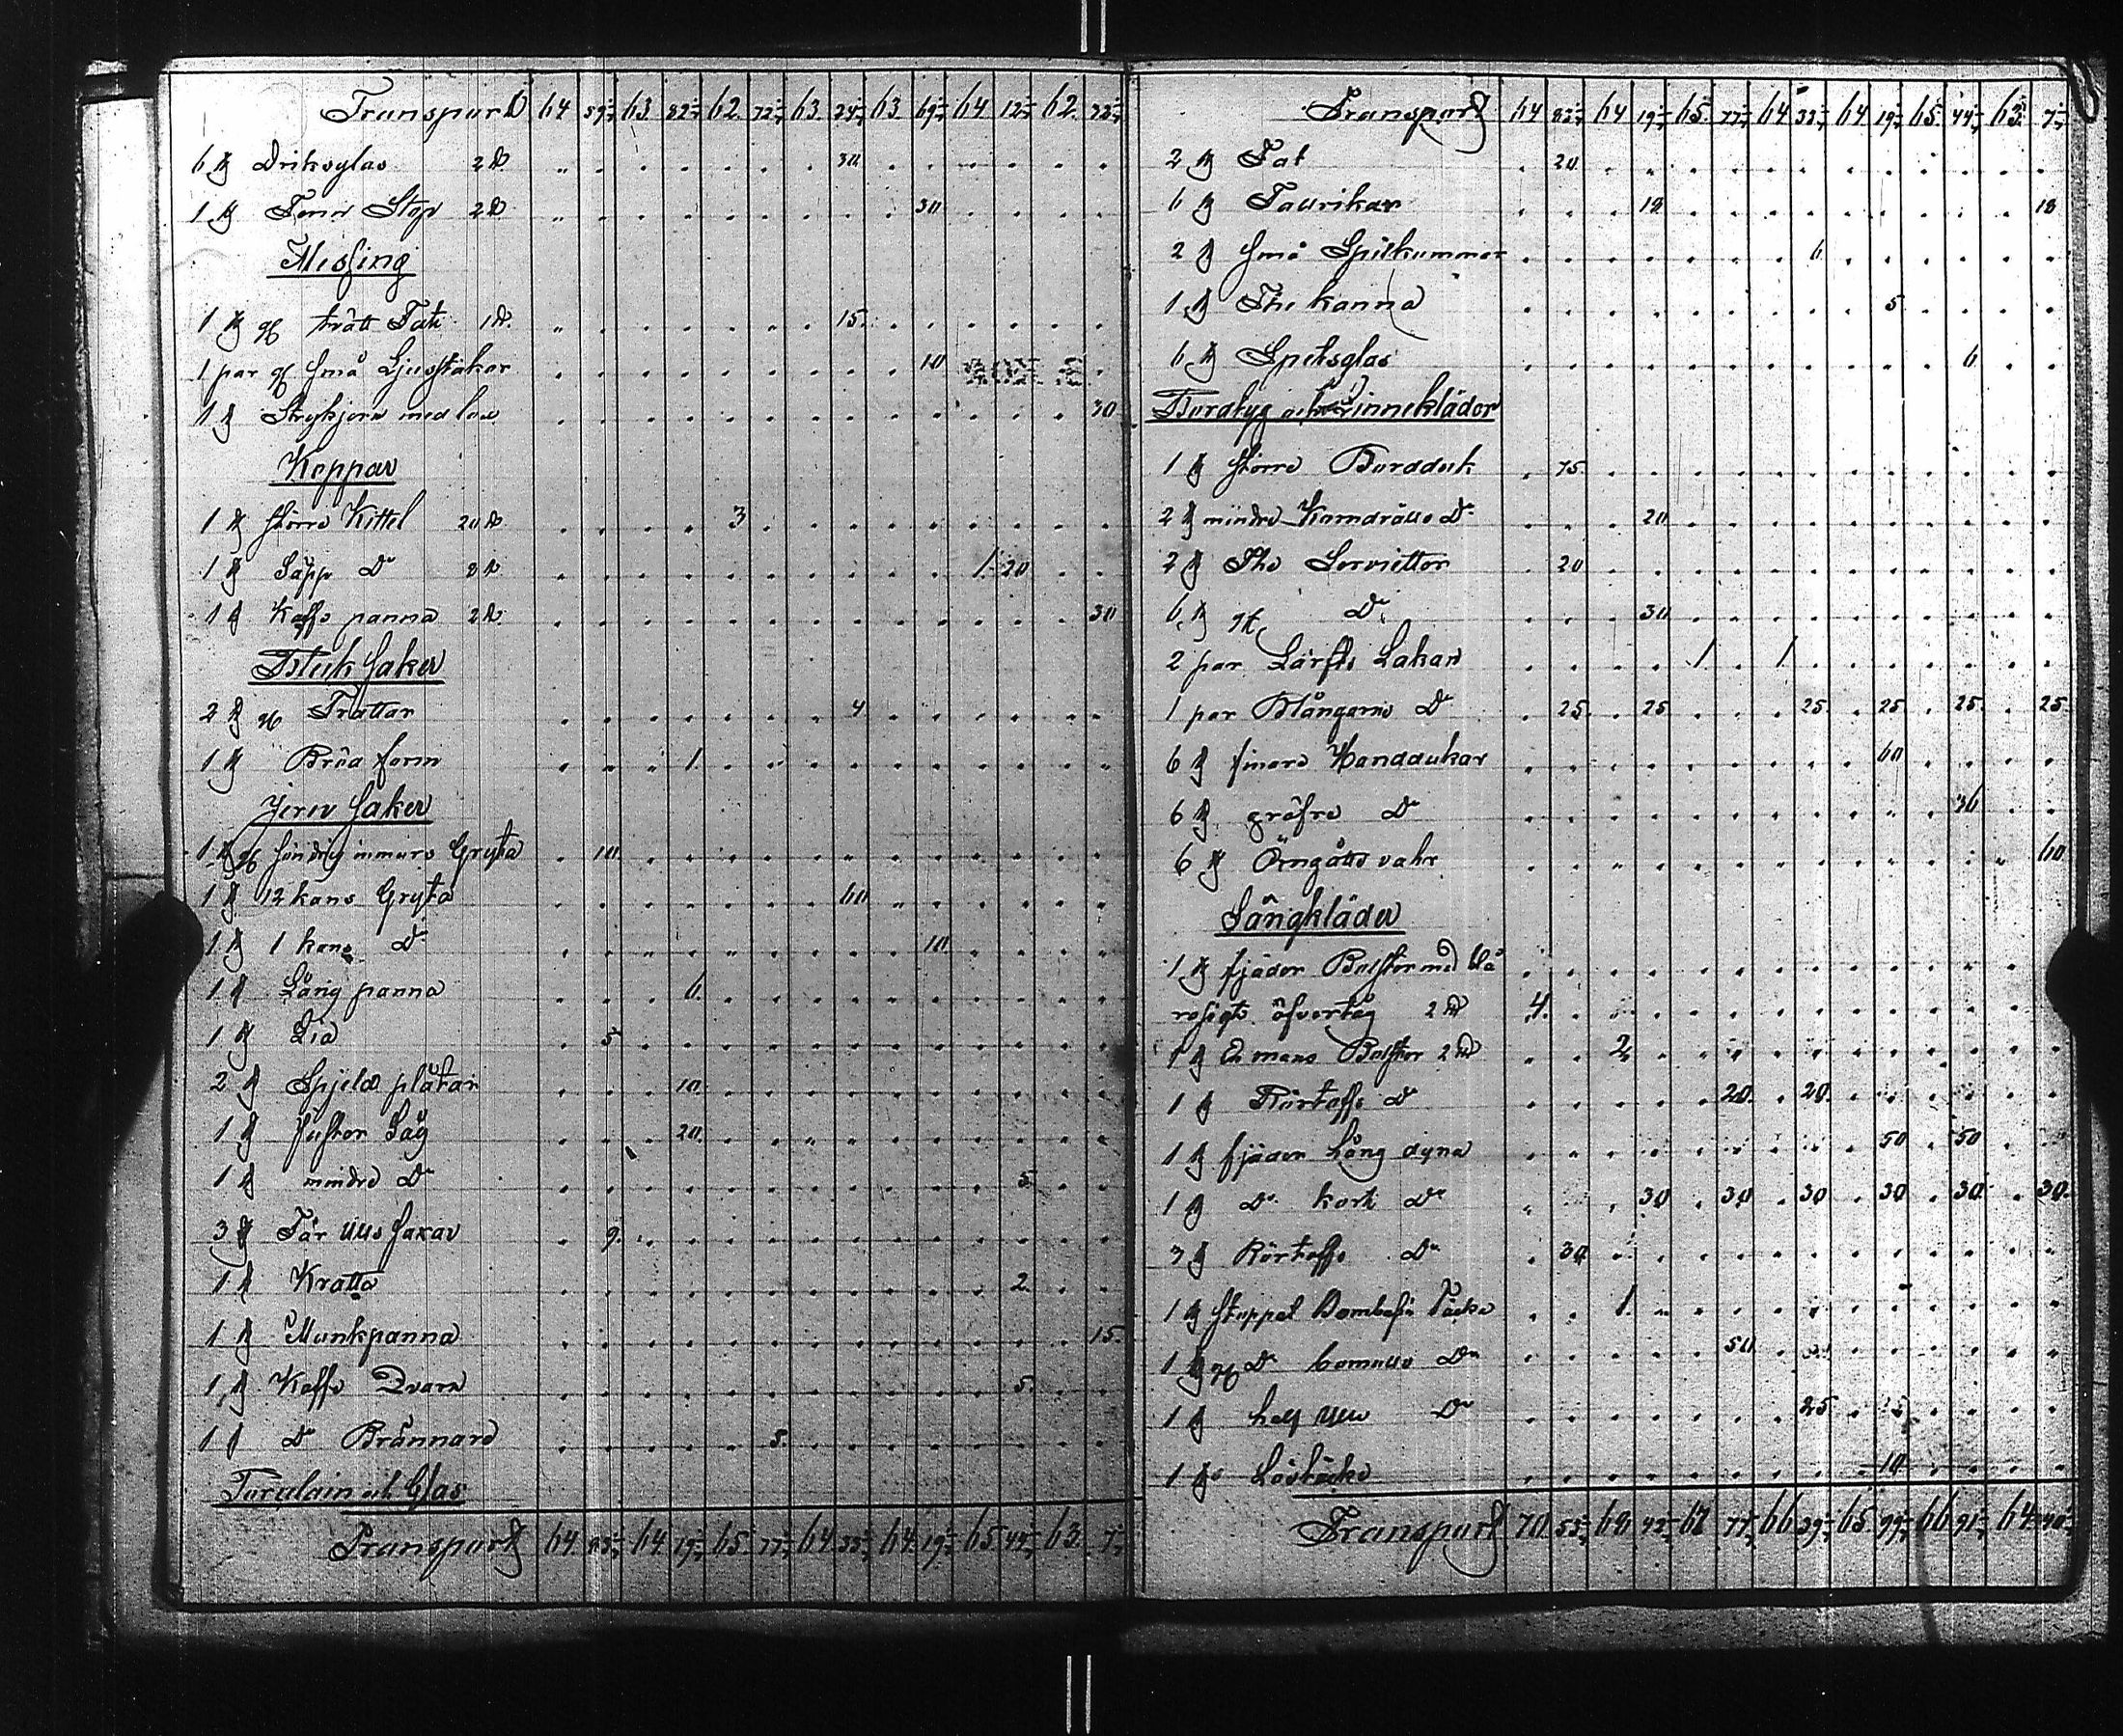 Transport 64 59 63 82 62 72 63 24 63 69 64 12 62 22
6 st Driksglas 2 D 30
1 st Tenn Stop 2 D 30
Messing
1 st gl trätt Fatt 1 D 15
1 par gl små Ljusstakar 10
1 st Strykjern med lod 30
Koppar
1 st större Kittel 20 D 3
1 st Säpp Do 8 D 1 20
1 st Kaffe panna 2 D 30
Blek saker
2 st gl Trattar 4
1 st Bröd form 1
Jern saker
1 st gl söndrig inmura Gryta 10
1 st 12 kans Gryta 60
1 st 1 kans Do 10
1 st Lång panna 6
1 st Lia 5
2 st Spjeld plåtar 10
1 st Såg 20
1 st mindre Do 5
3 st Får Ulls saxar 9
1 st Kratta 2
1 st Munkpanna 15
1 st Kaffe Qvarn 5
1 st Do Brännare 5
Porslain och Glas
Transport 64 83 64 19 65 77 64 33 64 19 65 44 63 7
Transport 64 83 64 19 65 77 64 33 64 19 65 44 63 7
2 st Fat 20
6 st Taurikar 18 18
2 st små Spilkummar 6
1 st The kanna 5
6 st Spetsglas 6
Bordtyg och Linnekläder
1 st större Bordduk 75
2 st mindre Do 20
2 st The Servietter 20
6 st gl Do 30
2 par Lärfts Lakan 1 1
1 par Blångarns Do 25 25 25 25 25 25
6 st finare Handdukar 60
6 st gröfre Do 36
6 st Örngåtts vahr 60
Sängkläder
1 st fjäder Bolster med blå
rosigt öfvertåg 2 D 4
1 st En mans Bolster 2 D 2
1 st Do 20 20
1 st fjäder Lång dyna 50 50
1 st Do kort Do 30 30 30 30 30 30
3 st Do 30
1 st stoppat Täcke 1
1 st gl Do bomulls Do 50
1 st half Ulle Do 25
1 st Löstäcke 10
Transport 70 53 68 42 67 77 66 39 65 99 66 91 64 40